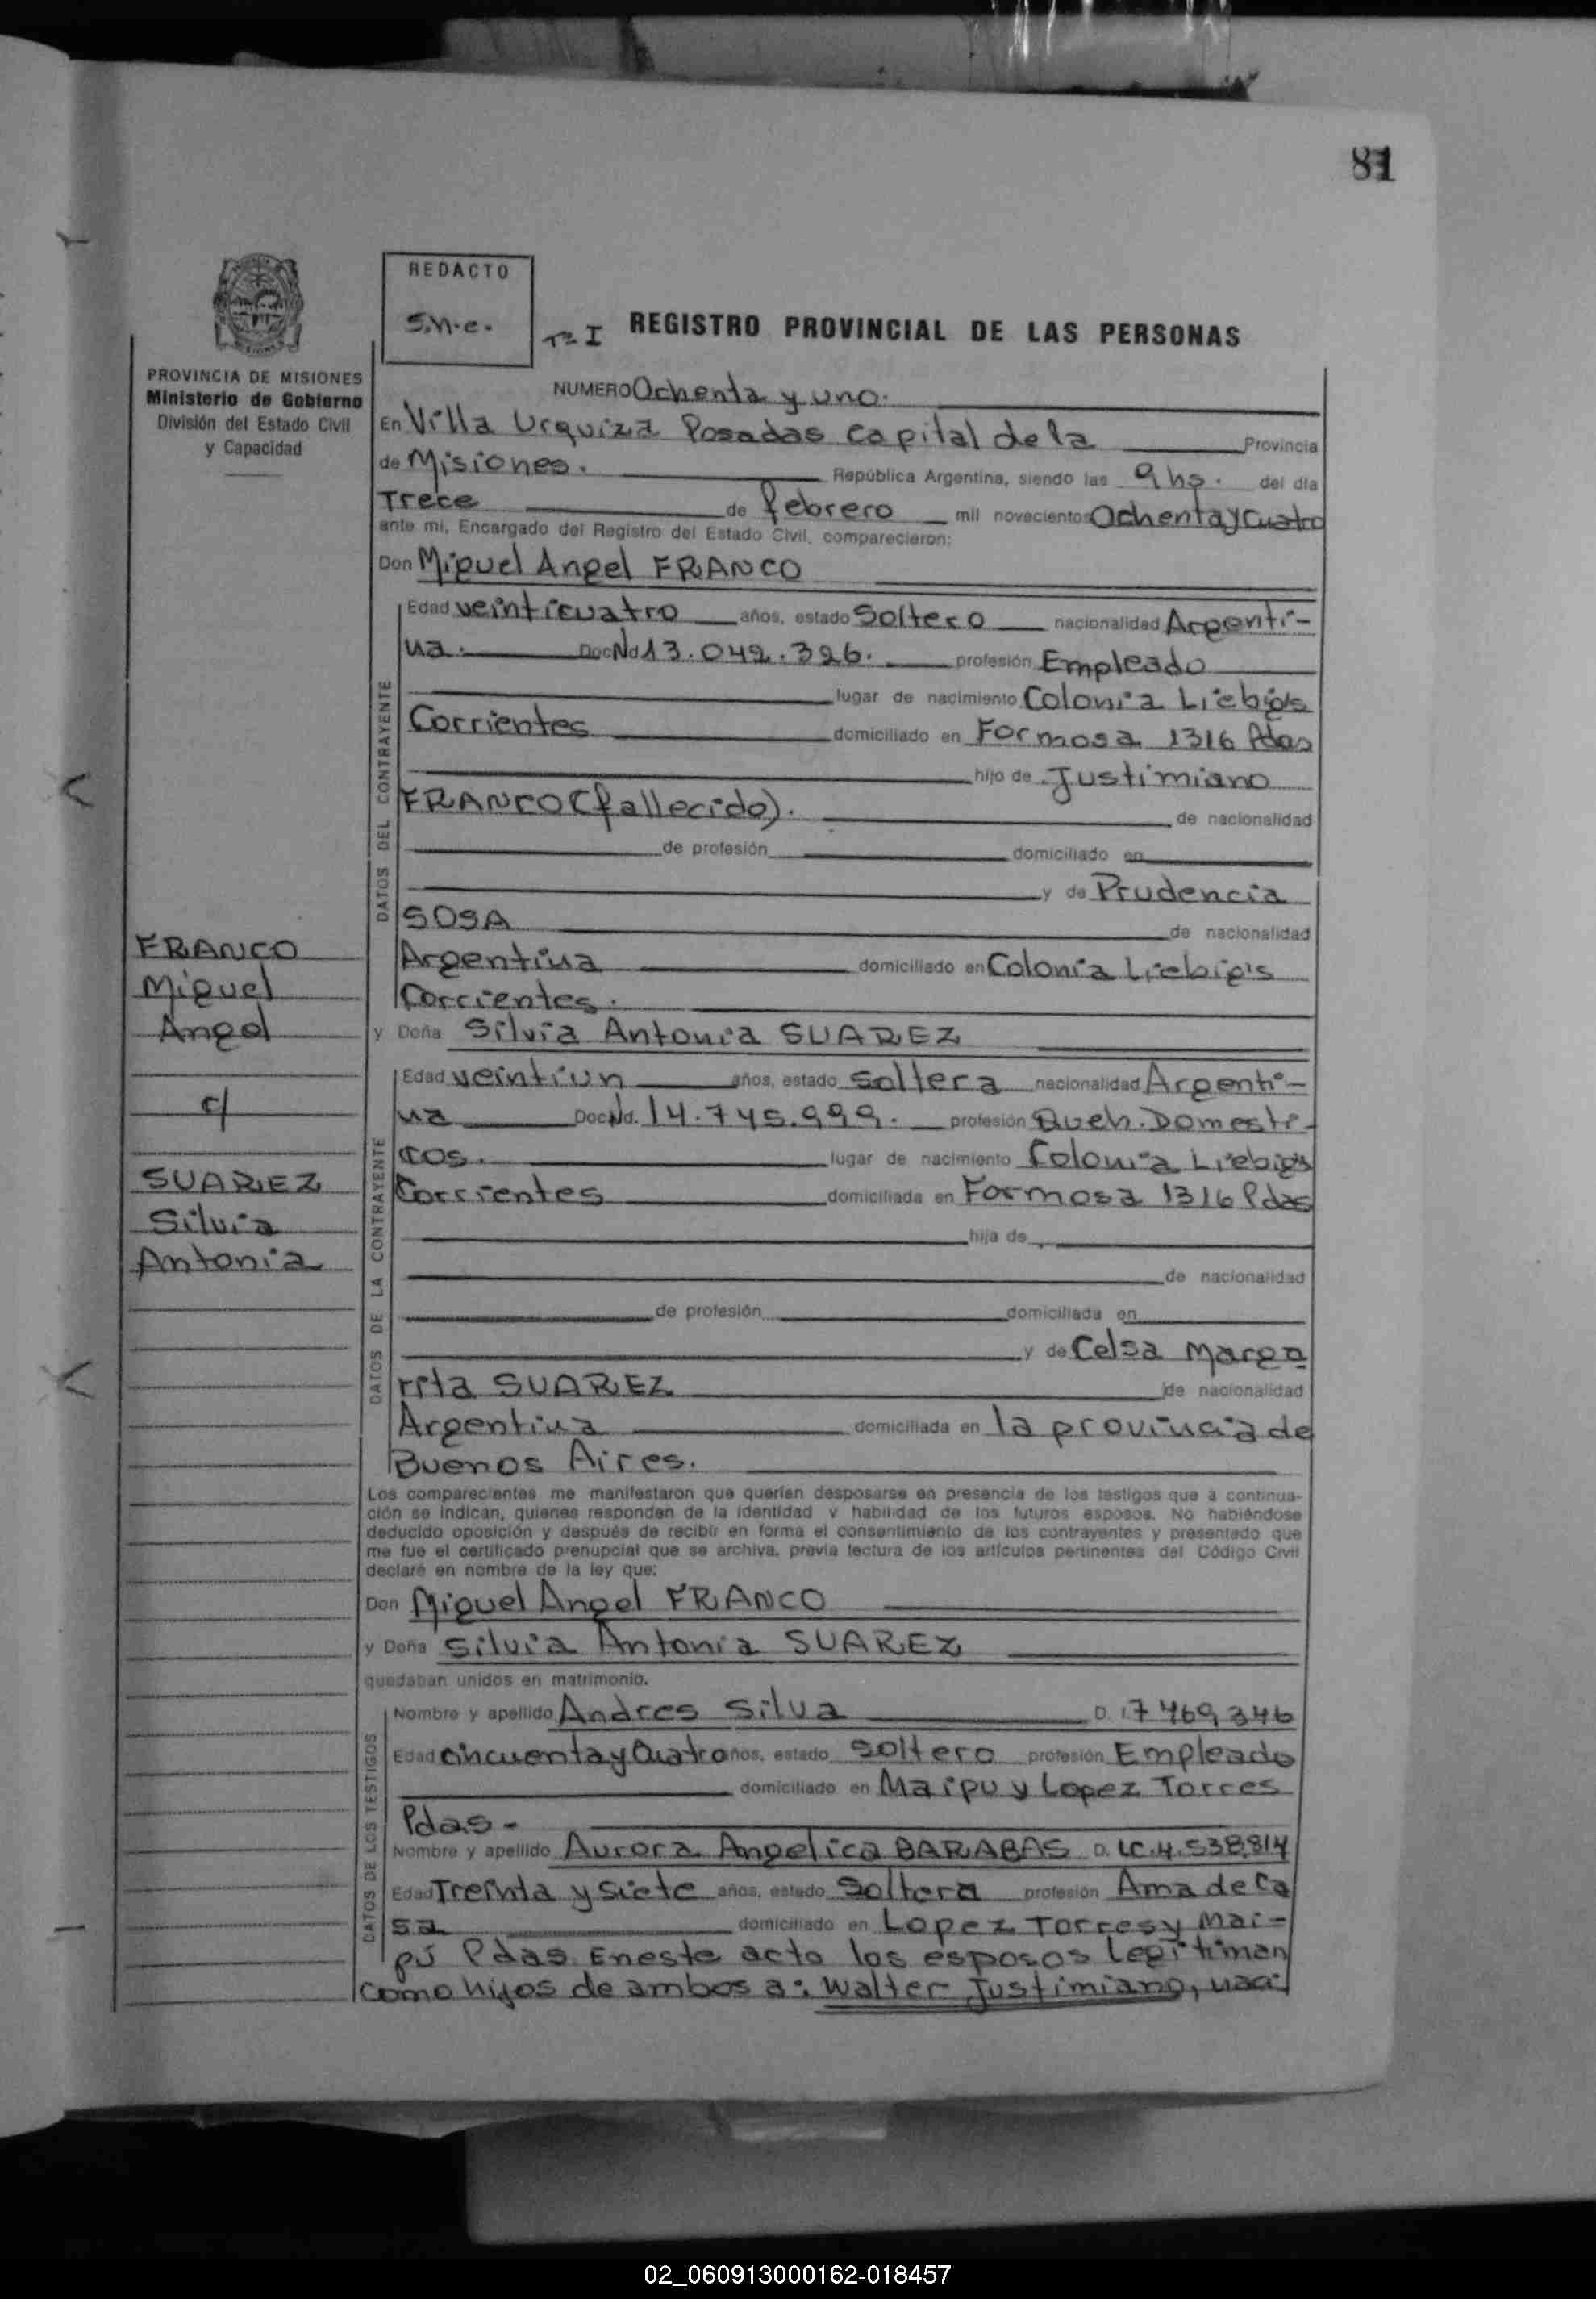 81
REDACTO
S.M.e.
Tº I REGISTRO PROVINCIAL DE LAS PERSONAS
PROVINCIA DE MISIONES
Ministerio de Gobierno
División del Estado Civil
y Capacidad
NUMERO Ochenta y uno.
En Villa Urquiza Posadas Capital de la Provincia
de Misiones. República Argentina, siendo las 9 hs. del día
Trece de febrero mil novecientos Ochenta y Cuatro
ante mí, Encargado del Registro del Estado Civil, comparecieron:
Don Miguel Angel FRANCO
DATOS DEL CONTRAYENTE
Edad veinticuatro años, estado Soltero nacionalidad Argenti-
na. Doc Nd 13.042.326. profesión Empleado
lugar de nacimiento Colonia Liebigs
Corrientes domiciliado en Formosa 1316 Pdas
hijo de Justimiano
FRANCO (fallecido). de nacionalidad
de profesión domiciliado en
y de Prudencia
SOSA de nacionalidad
Argentina domiciliado en Colonia Liebig's
Corrientes.
FRANCO
Miguel
Angel
c/
SUAREZ
Silvia
Antonia
y Doña Silvia Antonia SUAREZ
DATOS DE LA CONTRAYENTE
Edad veintiun años, estado Soltera nacionalidad Argenti-
na Doc Nd. 14.745.999. profesión Queh. Domesti-
cos. lugar de nacimiento Colonia Liebigs
Corrientes domiciliada en Formosa 1316 Pdas
hija de
de nacionalidad
de profesión domiciliada en
y de Celsa Marga
rita SUAREZ de nacionalidad
Argentina domiciliada en la provincia de
Buenos Aires.
Los comparecientes me manifestaron que querían desposarse en presencia de los testigos que a continua-
ción se indican, quienes responden de la identidad y habilidad de los futuros esposos. No habiéndose
deducido oposición y después de recibir en forma el consentimiento de los contrayentes y presentado que
me fue el certificado prenupcial que se archiva, previa lectura de los artículos pertinentes del Código Civil
declaré en nombre de la ley que:
Don Miguel Angel FRANCO
y Doña Silvia Antonia SUAREZ
quedaban unidos en matrimonio.
DATOS DE LOS TESTIGOS
Nombre y apellido Andres Silva D. I. 7469,346
Edad cincuenta y Cuatro años, estado Soltero profesión Empleado
domiciliado en Maipu y Lopez Torres
Pdas-
Nombre y apellido Aurora Angelica BARABAS D. LC.4.538.814
Edad Treinta y siete años, estado Soltera profesión Ama de Ca
sa domiciliado en Lopez Torres y Mai-
pú Pdas. En este acto los esposos Legitiman
como hijos de ambos a: Walter Justimiano, naci
02_060913000162-018457